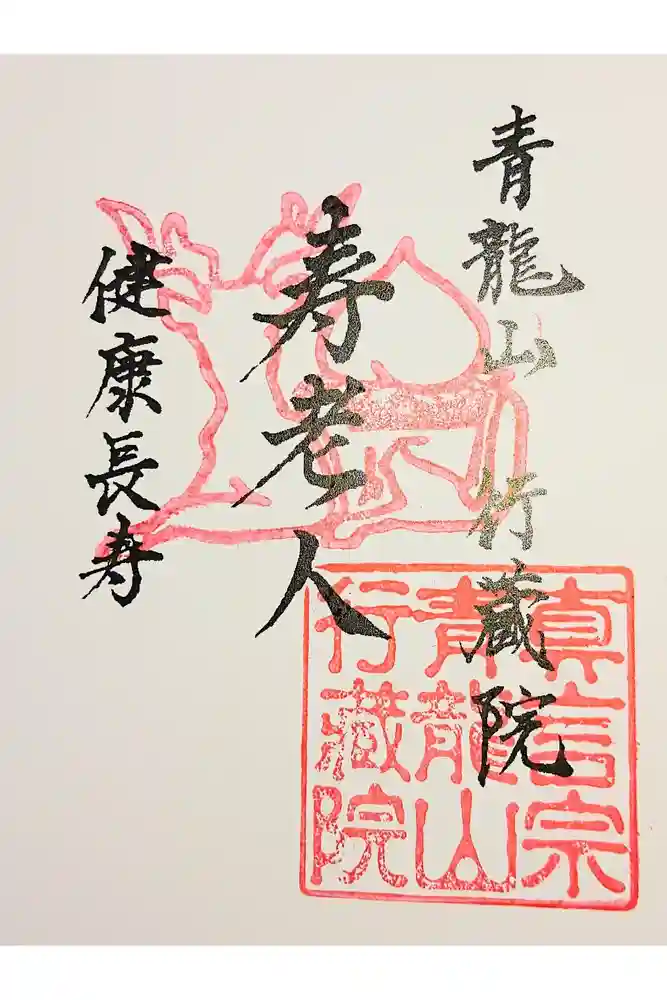 青龍山 行蔵院
寿老人
健康長寿
真言宗
青龍山
行蔵院